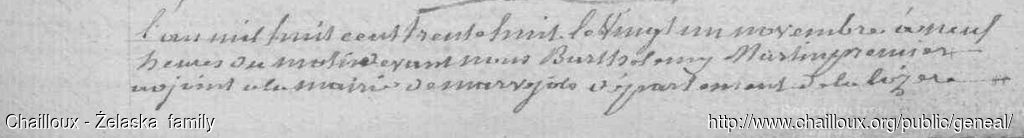 l'an mil huit cent trente huit le vingt un novembre à neuf
heures du matin devant nous Barthelemy Martin premier
adjoint a la mairie de marvejols département de la lozere
Chailloux - Żelaska family
http://www.chailloux.org/public/geneal/